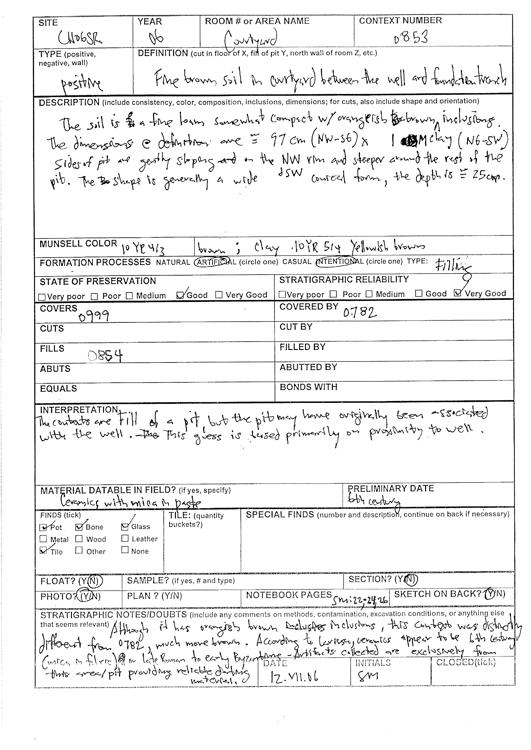 SITE YEAR ROOM # or AREA NAME CONTEXT NUMBER
CH06SR 06 Courtyard 0853
TYPE (positive, negative, wall) DEFINITION (cut in floor of X, fill of pit Y, north wall of room Z, etc.)
positive Fine brown soil in courtyard between the well and foundation trench
DESCRIPTION (include consistency, color, composition, inclusions, dimensions; for cuts, also include shape and orientation)
The soil is a fine loam somewhat compact w/ orangeish brown inclusions.
The dimensions @ definition are ≅ 97 cm (NW-SE) x 1 M (NE-SW)
Sides of pit are gently sloping on the NW rim and steeper around the rest of the
pit. The shape is generally a wide conical form, the depth is ≅ 25cm.
MUNSELL COLOR 10 YR 4/3 brown; Clay 10YR 5/4 Yellowish brown
FORMATION PROCESSES NATURAL ARTIFICIAL (circle one) CASUAL INTENTIONAL (circle one) TYPE: Filling
STATE OF PRESERVATION STRATIGRAPHIC RELIABILITY
Very poor Poor Medium Good Very Good Very poor Poor Medium Good Very Good
COVERS 0999 COVERED BY 0782
CUTS CUT BY
FILLS 0854 FILLED BY
ABUTS ABUTTED BY
EQUALS BONDS WITH
INTERPRETATION
The contexts are fill of a pit, but the pit may have originally been associated
with the well. This guess is based primarily on proximity to well.
MATERIAL DATABLE IN FIELD? (if yes, specify) PRELIMINARY DATE
Ceramics with mica in paste 6th century
FINDS (tick) TILE: (quantity buckets?) SPECIAL FINDS (number and description, continue on back if necessary)
Pot Bone Glass
Metal Wood Leather
Tile Other None
FLOAT? (Y/N) SAMPLE? (if yes, # and type) SECTION? (Y/N)
PHOTO? (Y/N) PLAN ? (Y/N) NOTEBOOK PAGES SM:22-24,26 SKETCH ON BACK? (Y/N)
STRATIGRAPHIC NOTES/DOUBTS (include any comments on methods, contamination, excavation conditions, or anything else
that seems relevant) Although it has orangish brown inclusions, this context was distinctly
different from 0782, much more brown. According to ceramics appear to be 6th century
(mica in fabric) or late Roman to early Byzantine - Artifacts collected are exclusively from
this area/pit providing reliable dating material.
DATE INITIALS CLOSED(tick)
12.VII.06 SM